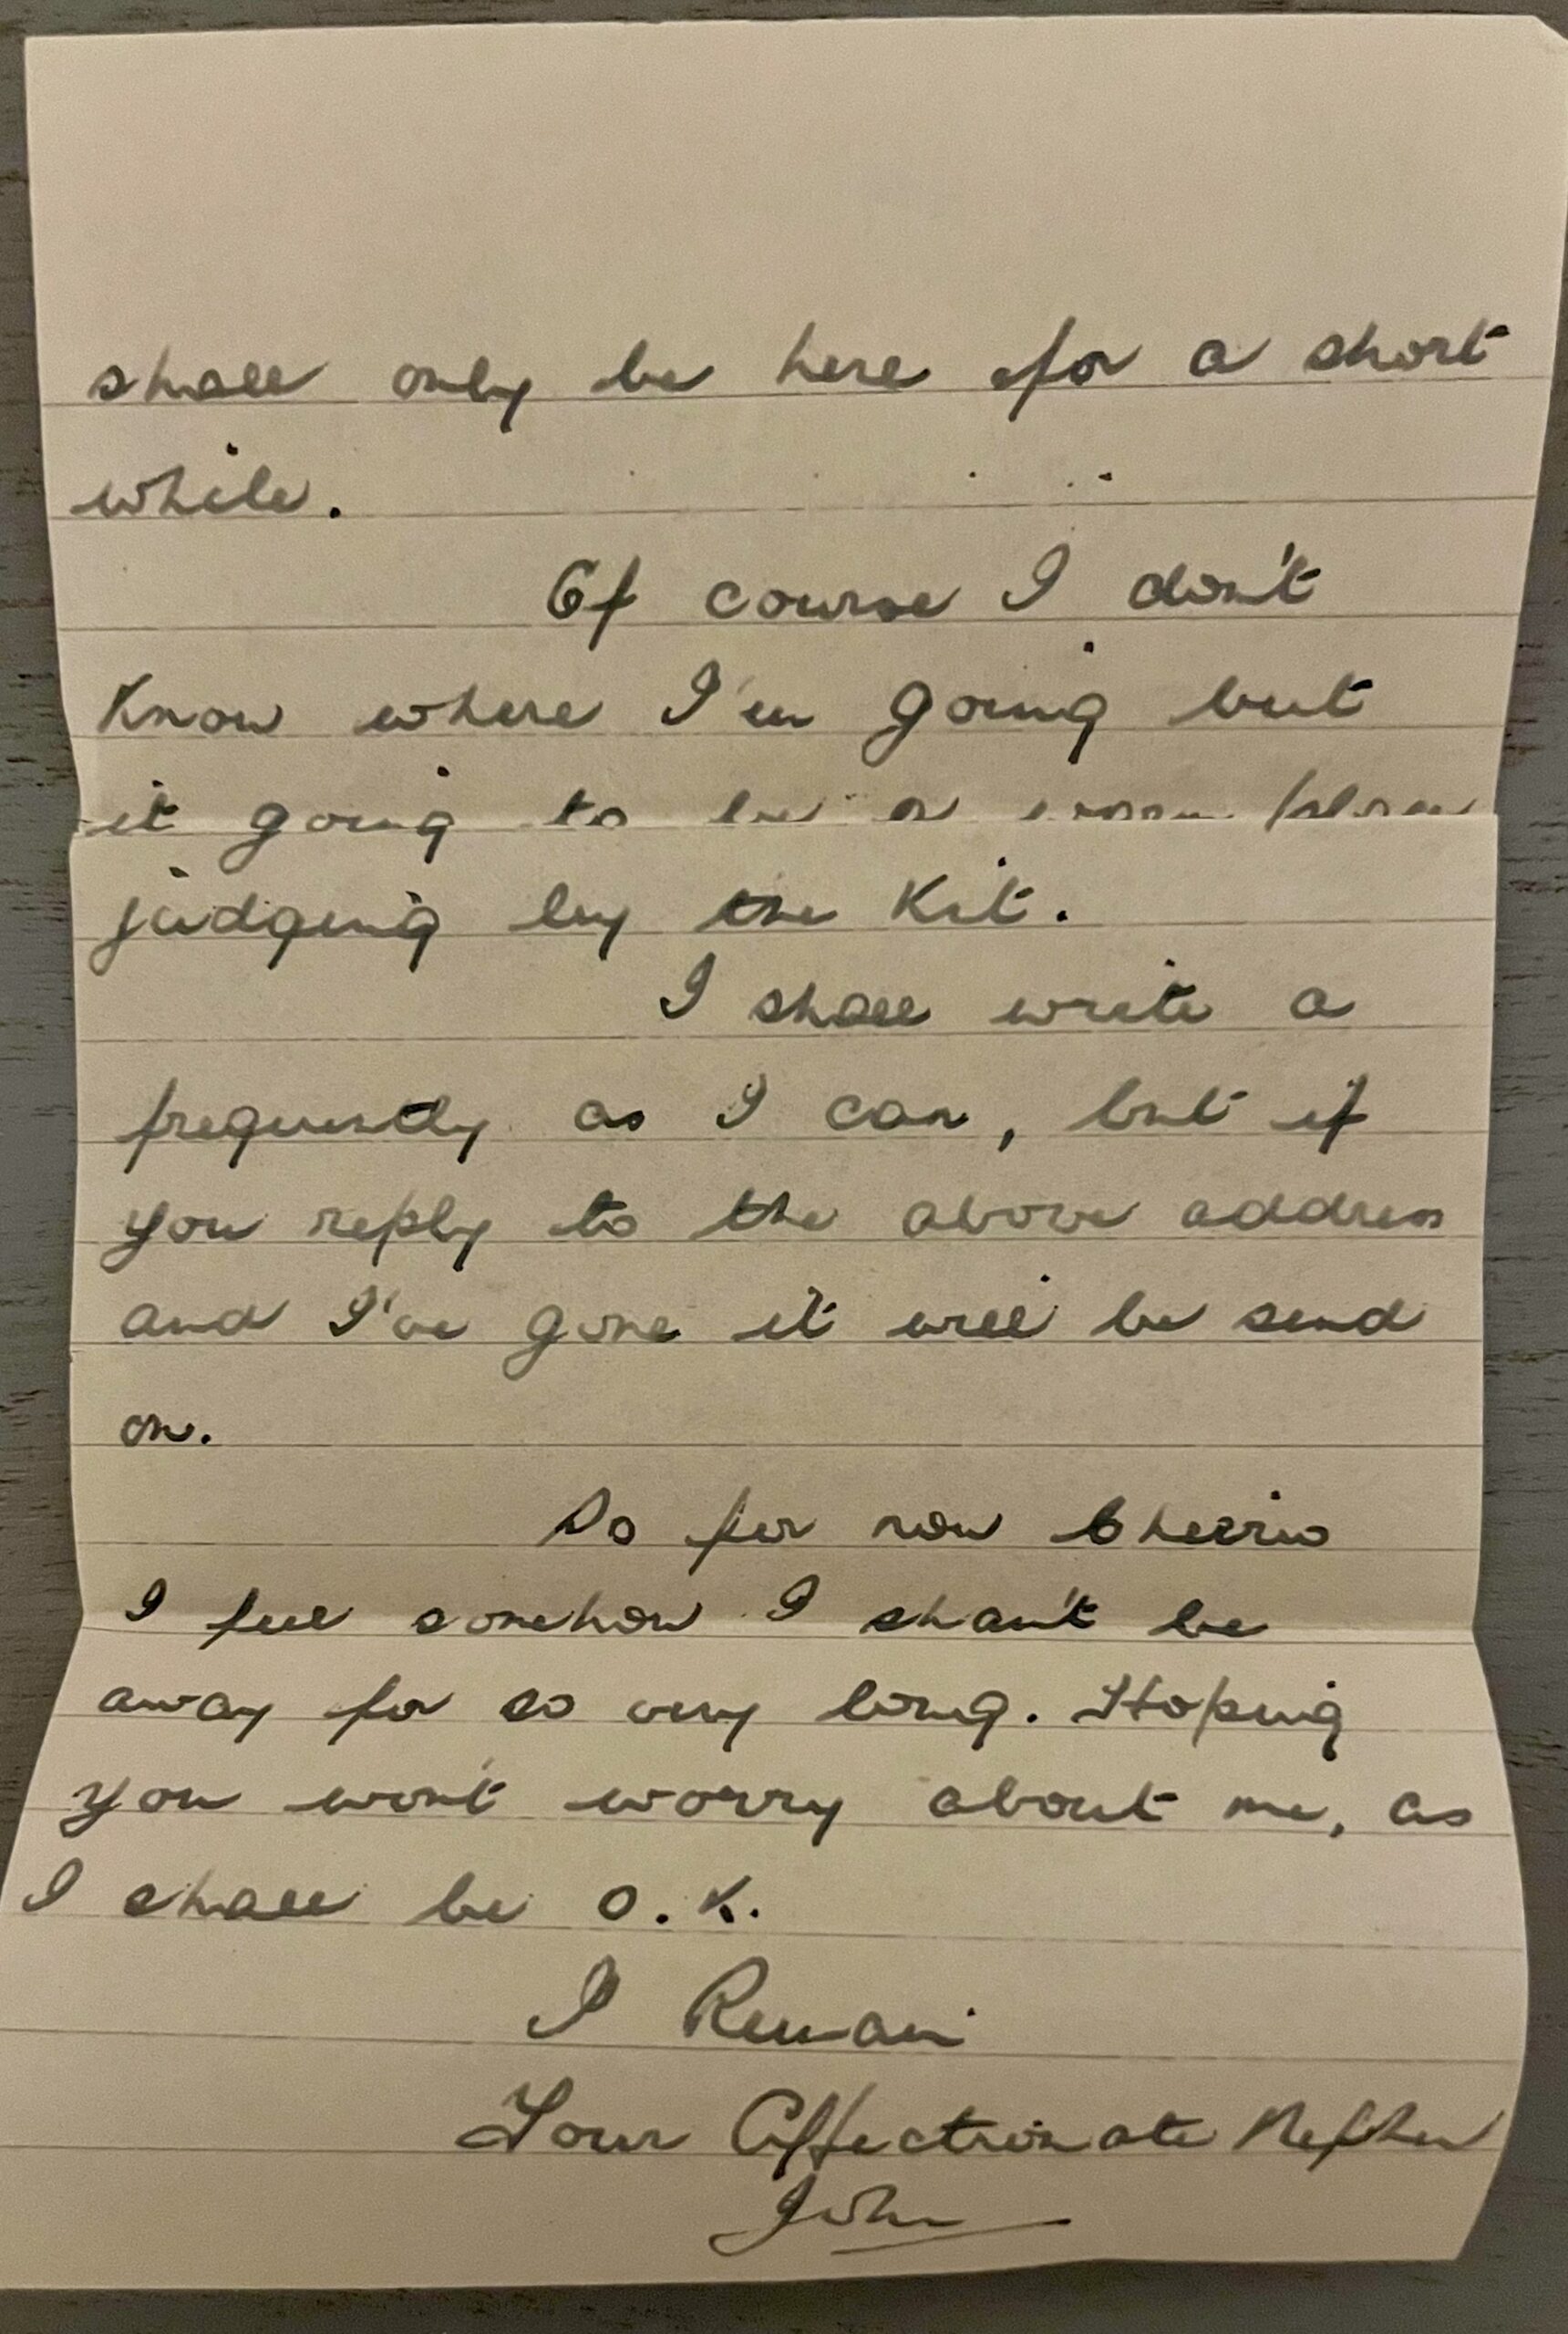 shall only be here for a short
while.
Of course I don't
Know where I'm going but
it going to be a warm place
judging by the Kit.
I shall write a
frequently as I can, but if
you reply to the above address
and I've gone it will be send
on.
So for now Cheerio
I feel somehow I shan't be
away for so very long. Hoping
you won't worry about me, as
I shall be O.K.
I Remain
Your Affectionate Nephew
John